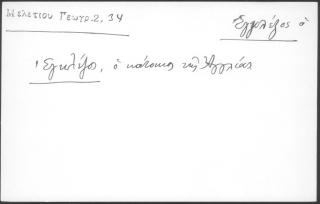 Μελετίου Γεωγρ. 2, 34
Ἐγγλέζος ὁ
Ἐγκλέζος, ὁ κάτοικος τῆς Ἀγγλίας